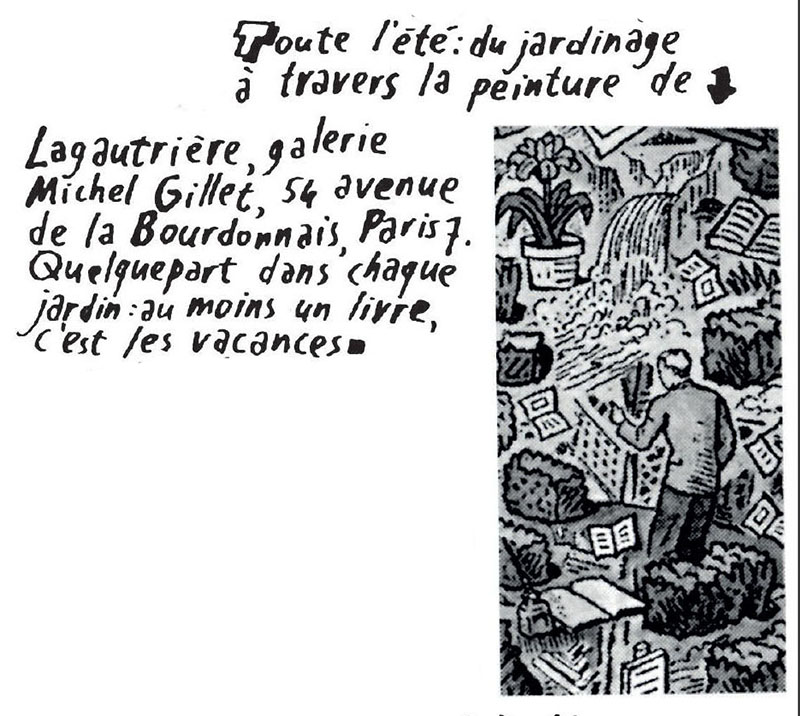 Toute l'été: du jardinage
à travers la peinture de
Lagautrière, galerie
Michel Gillet, 54 avenue
de la Bourdonnais, Paris 7.
Quelquepart dans chaque
jardin: au moins un livre,
c'est les vacances